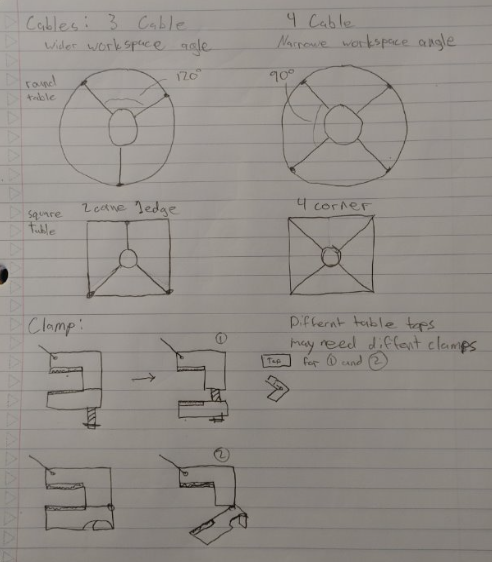 Cables: 3 Cable
Wider workspace agle
4 Cable
Narrowe workspace angle
round
table
120°
90°
square
table
2 cane 1edge
4 corner
Clamp:
①
Differnt table tops
may need diffent clamps
Top for ① and ②
Top
②